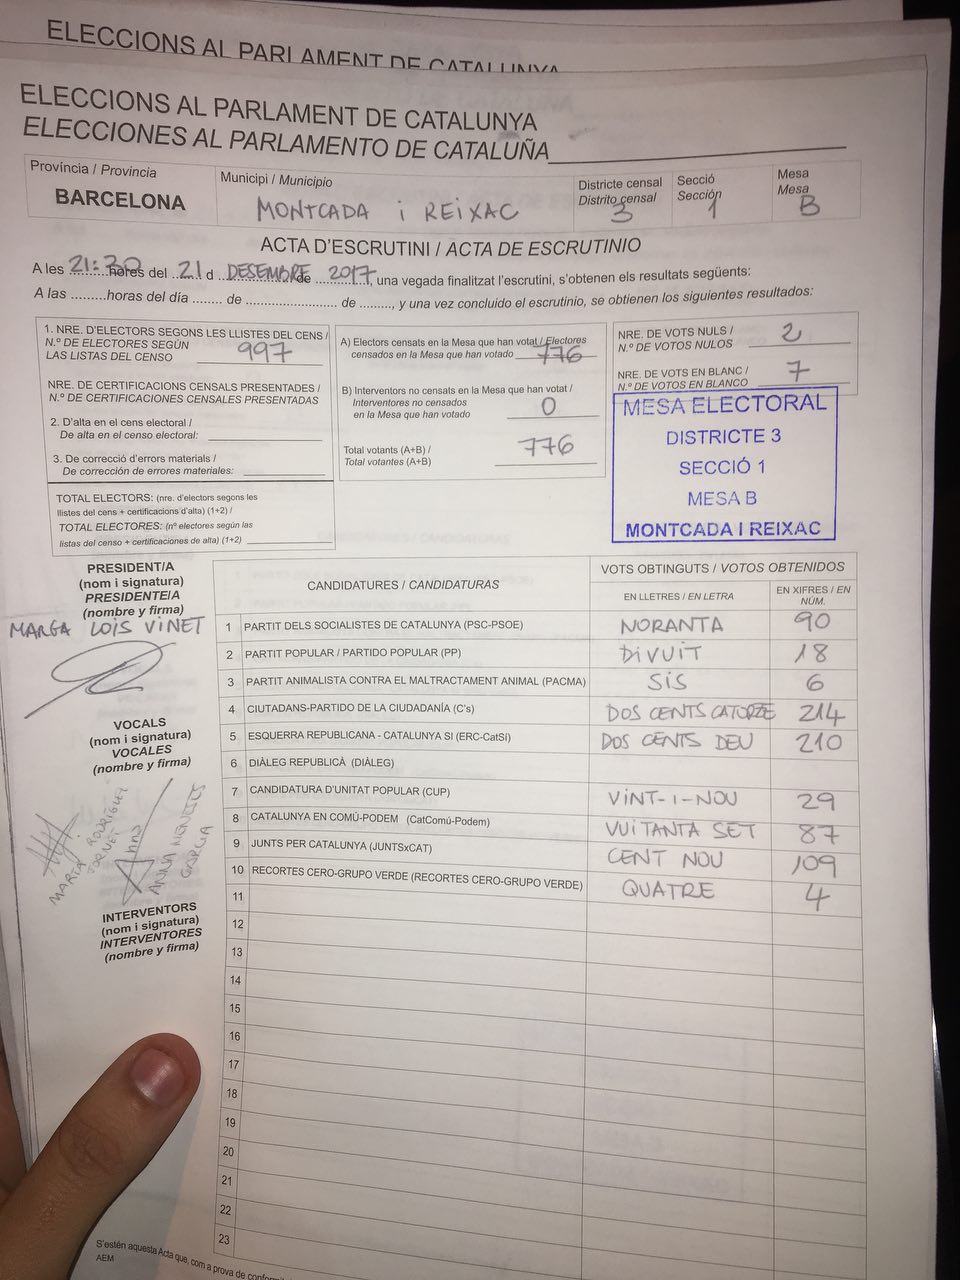 ELECCIONS AL PARLAMENT DE CATALUNYA
ELECCIONS AL PARLAMENT DE CATALUNYA
ELECCIONES AL PARLAMENTO DE CATALUÑA
Província / Provincia
BARCELONA
Municipi / Municipio
MONTCADA i REIXAC
Districte censal
Distrito censal
3
Secció
Sección
1
Mesa
Mesa
B
ACTA D'ESCRUTINI / ACTA DE ESCRUTINIO
A les 21:30 hores del 21 d DESEMBRE de 2017, una vegada finalitzat l'escrutini, s'obtenen els resultats següents:
A las .........horas del día ........ de ...................... de ........, y una vez concluido el escrutinio, se obtienen los siguientes resultados:
1. NRE. D'ELECTORS SEGONS LES LLISTES DEL CENS /
N.º DE ELECTORES SEGÚN
LAS LISTAS DEL CENSO 997
NRE. DE CERTIFICACIONS CENSALS PRESENTADES /
N.º DE CERTIFICACIONES CENSALES PRESENTADAS
2. D'alta en el cens electoral /
De alta en el censo electoral:
3. De correcció d'errors materials /
De corrección de errores materiales:
TOTAL ELECTORS: (nre. d'electors segons les
llistes del cens + certificacions d'alta) (1+2) /
TOTAL ELECTORES: (nº electores según las
listas del censo + certificaciones de alta) (1+2)
A) Electors censats en la Mesa que han votat / Electores
censados en la Mesa que han votado 776
B) Interventors no censats en la Mesa que han votat /
Interventores no censados
en la Mesa que han votado 0
Total votants (A+B) /
Total votantes (A+B) 776
NRE. DE VOTS NULS /
N.º DE VOTOS NULOS 2
NRE. DE VOTS EN BLANC /
N.º DE VOTOS EN BLANCO 7
MESA ELECTORAL
DISTRICTE 3
SECCIÓ 1
MESA B
MONTCADA I REIXAC
PRESIDENT/A
(nom i signatura)
PRESIDENTE/A
(nombre y firma)
MARGA LOIS VINET
VOCALS
(nom i signatura)
VOCALES
(nombre y firma)
MARÍA RODRÍGUEZ
ANNA
GARCIA
INTERVENTORS
(nom i signatura)
INTERVENTORES
(nombre y firma)
CANDIDATURES / CANDIDATURAS
VOTS OBTINGUTS / VOTOS OBTENIDOS
EN LLETRES / EN LETRA
EN XIFRES / EN NÚM.
1 PARTIT DELS SOCIALISTES DE CATALUNYA (PSC-PSOE) NORANTA 90
2 PARTIT POPULAR / PARTIDO POPULAR (PP) DiVUiT 18
3 PARTIT ANIMALISTA CONTRA EL MALTRACTAMENT ANIMAL (PACMA) SiS 6
4 CIUTADANS-PARTIDO DE LA CIUDADANÍA (C's) DOS CENTS CATORZE 214
5 ESQUERRA REPUBLICANA - CATALUNYA SI (ERC-CatSí) DOS CENTS DEU 210
6 DIÀLEG REPUBLICÀ (DIÀLEG)
7 CANDIDATURA D'UNITAT POPULAR (CUP) VINT-I-NOU 29
8 CATALUNYA EN COMÚ-PODEM (CatComú-Podem) VUITANTA SET 87
9 JUNTS PER CATALUNYA (JUNTSxCAT) CENT NOU 109
10 RECORTES CERO-GRUPO VERDE (RECORTES CERO-GRUPO VERDE) QUATRE 4
11
12
13
14
15
16
17
18
19
20
21
22
23
S'estén aquesta Acta que, com a prova de
AEM